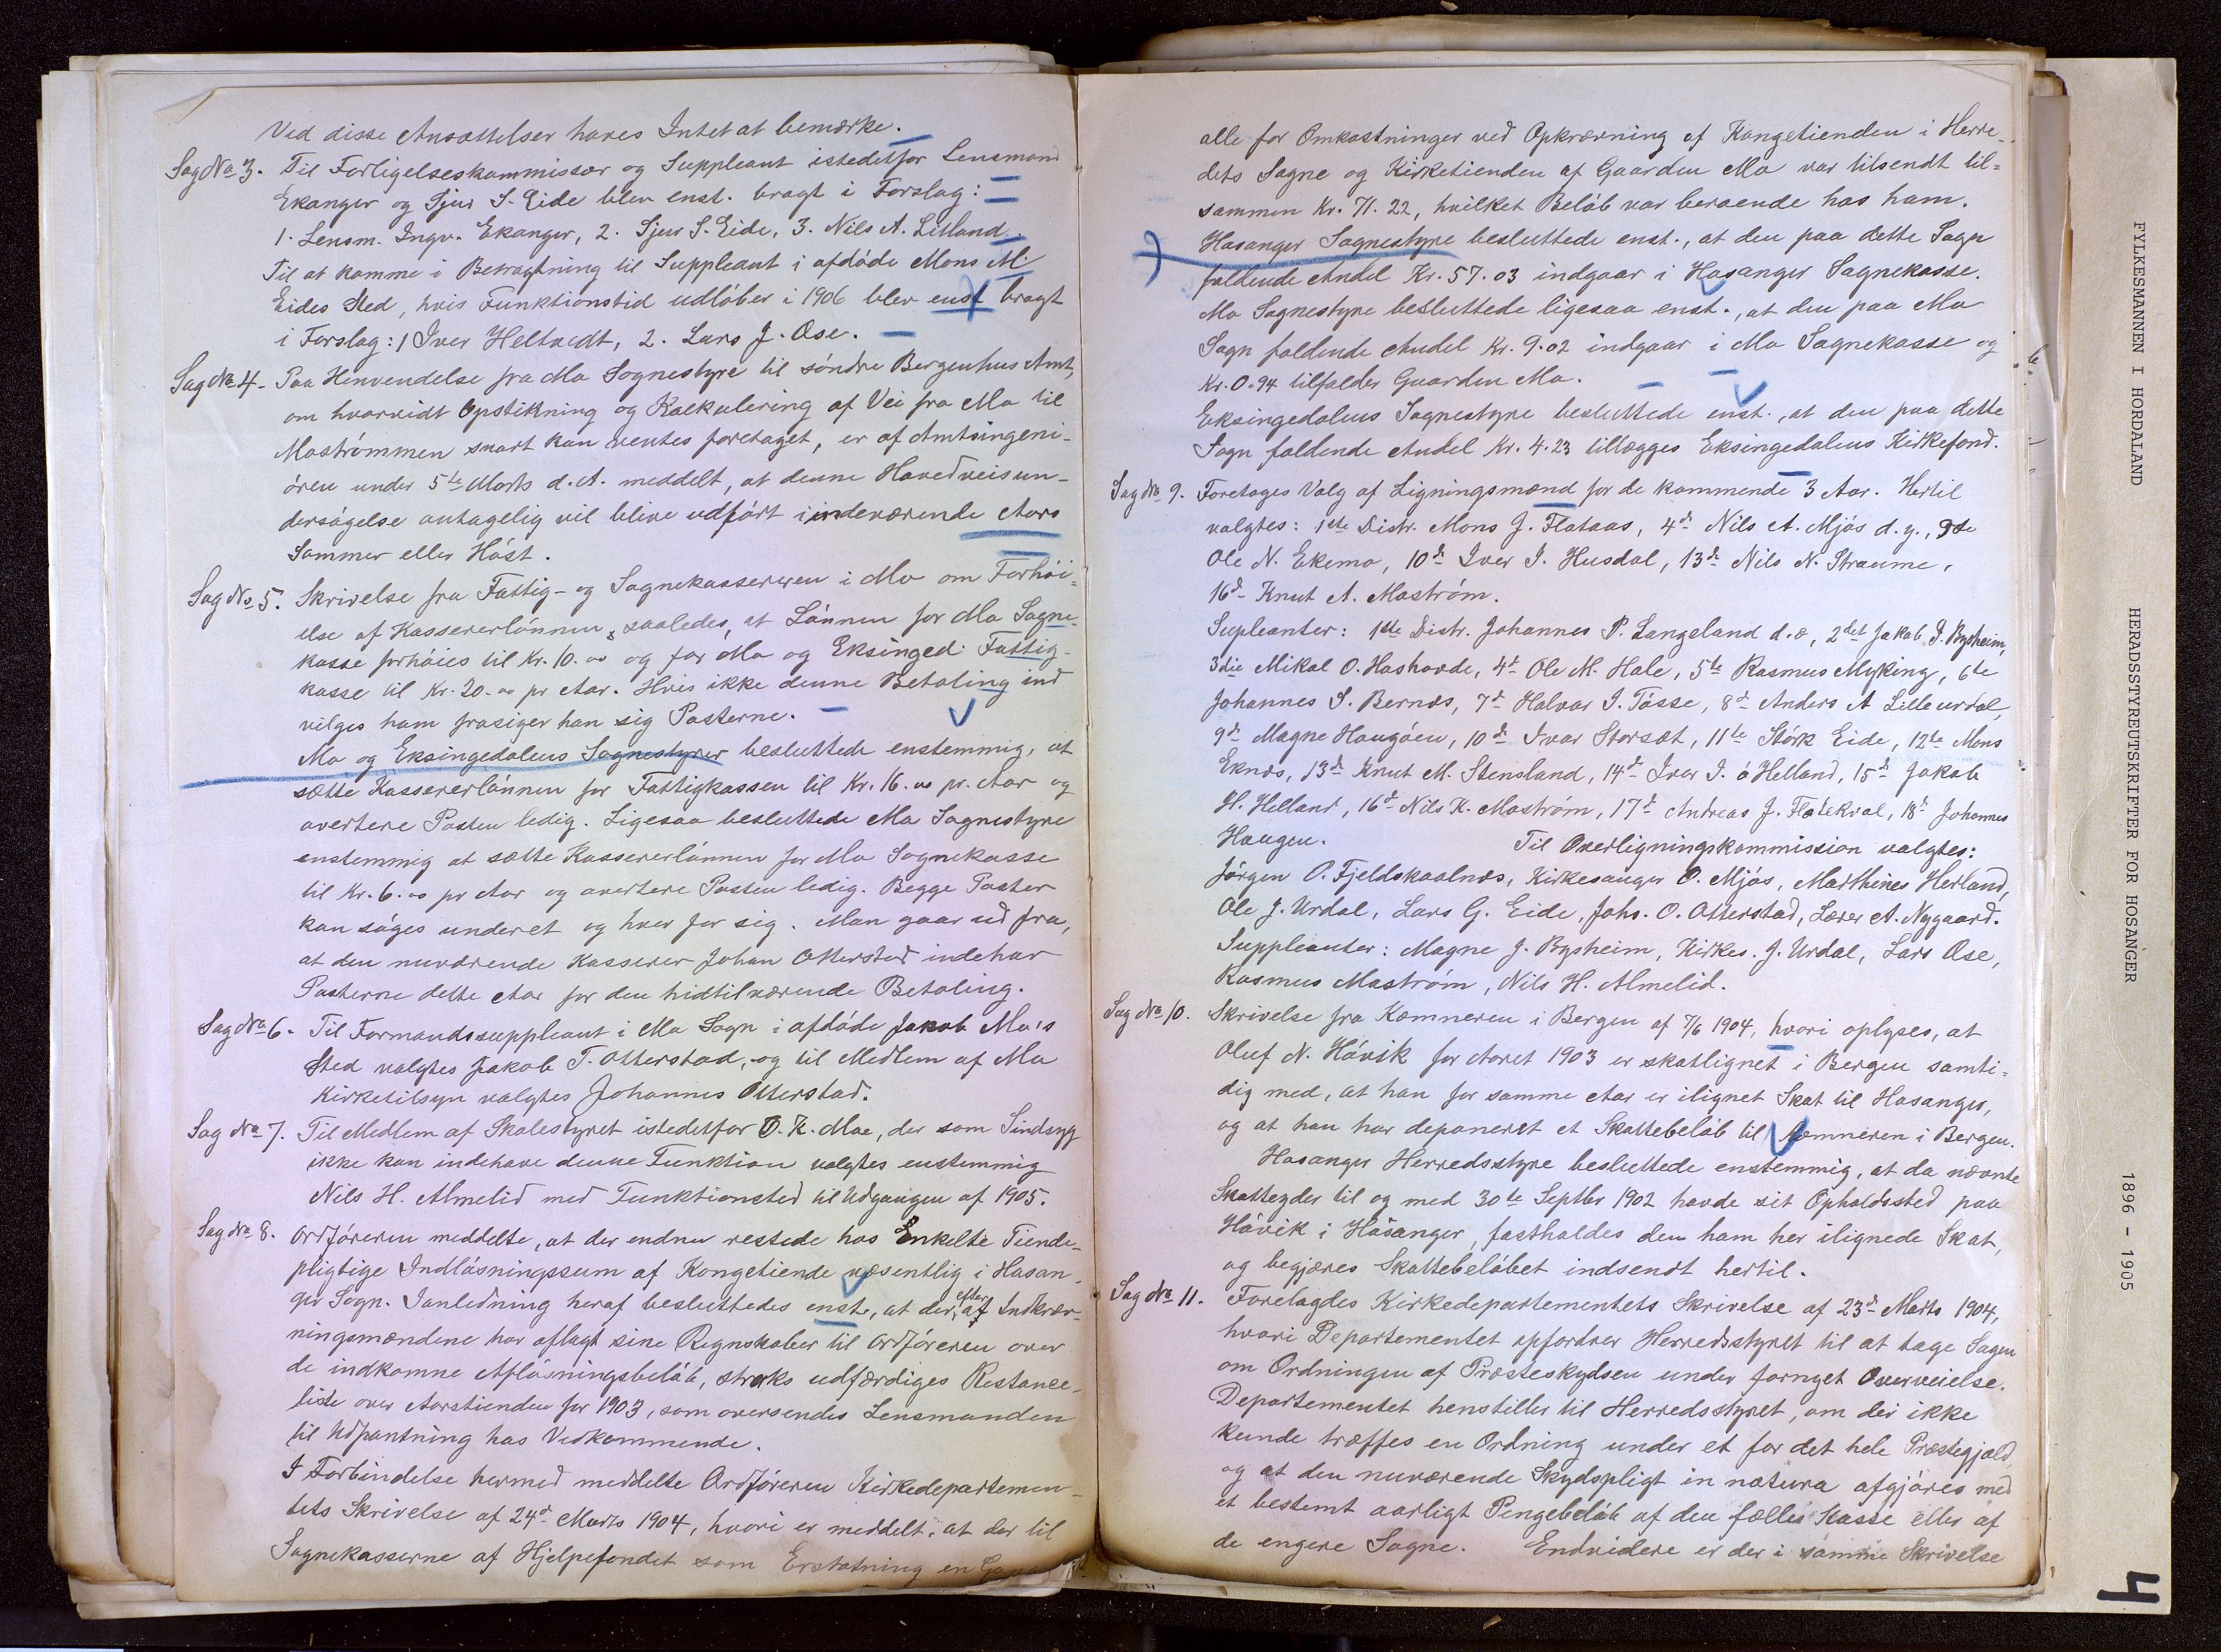 Ved disse Ansættelser haves Intet at bemærke.
Sag No 3. Til Forligelseskommissær og Suppleant istedetfor Lensmand
Ekanger og Sjur S. Eide blev enst. bragt i Forslag:
1. Lensm. Ingv. Ekanger, 2. Sjur S. Eide, 3. Nils A. Litland.
Til at komme i Betragtning til Suppleant i afdøde Mons M.
Eides Sted, hvis Funktionstid udløber i 1906 blev enst bragt
i Forslag: 1 Iver Heltvedt, 2. Lars J. Ose.
Sag No 4. Paa Henvendelse fra Mo Sognestyre til søndre Bergenhus Amt,
om hvorvidt Opstikning og Kalkulering af Vei fra Mo til
Mostrømmen snart kan ventes foretaget, er af Amtsingeni-
øren under 5te Marts d. A. meddelt, at denne Hovedveisun-
dersøgelse antagelig vil blive udført i indeværende Aars
Sommer eller Høst.
Sag No 5. Skrivelse fra Fattig- og Sognekassereren i Mo om Forhøi-
else af Kassererlønnen, saaledes, at Lønnen for Mo Sogne-
kasse forhøies til Kr. 10.00 og for Mo og Eksinged. Fattig-
kasse til Kr. 20.00 pr Aar. Hvis ikke denne Betaling ind
vilges ham frasiger han sig Posterne.
Mo og Eksingedalens Sognestyrer besluttede enstemmig, at
sætte Kassererlønnen for Fattigkassen til Kr. 16.00 pr. Aar og
avertere Posten ledig. Ligesaa besluttede Mo Sognestyre
enstemmig at sætte Kassererlønnen for Mo Sognekasse
til Kr. 6.00 pr Aar og avertere Posten ledig. Begge Poster
kan søges underet og hver for sig. Man gaar ud fra,
at den nuværende Kasserer Johan Otterstad indehar
Posterne dette Aar for den hidtilværende Betaling.
Sag No 6. Til Formandssuppleant i Mo Sogn i afdøde Jakob Mo's
Sted valgtes Jakob T. Otterstad, og til Medlem af Mo
Kirketilsyn valgtes Johannes Otterstad.
Sag No 7. Til Medlem af Skolestyret istedetfor O. K. Moe, der som Sindsyg
ikke kan indehave denne Funktion valgtes enstemmig
Nils H. Almelid med Funktionsted til Udgangen af 1905.
Sag No 8. Ordføreren meddelte, at der endnu restede hos Enkelte Tiende-
pligtige Indløsningssum af Kongetiende væsentlig i Hosan-
ger Sogn. I anledning heraf besluttedes enst., at der, efter at Indkræv-
ningsmændene har aflagt sine Regnskaber til Ordføreren over
de indkomne Afløsningsbeløb, straks udfærdiges Restance-
liste over Aarstienden for 1903, som oversendes Lensmanden
til Udpantning hos Vedkommende.
I Forbindelse hermed meddelte Ordføreren Kirkedepartemen-
tets Skrivelse af 24de Marts 1904, hvori er meddelt, at der til
Sognekasserne af Hjelpefondet som Erstatning en Gang
alle for Omkostninger ved Opkrævning af Kongetienden i Herre-
dets Sogne og Kirketienden af Gaarden Mo var tilsendt til-
sammen Kr. 71.22, hvilket Beløb var beroende hos ham.
Hosanger Sognestyre besluttede enst., at den paa dette Sogn
faldende Andel Kr. 57.03 indgaar i Hosanger Sognekasse.
Mo Sognestyre besluttede ligesaa enst., at den paa Mo
Sogn faldende Andel Kr. 9.02 indgaar i Mo Sognekasse og
Kr. 0.94 tilfalder Gaarden Mo.
Eksingedalens Sognestyre besluttede enst., at den paa dette
Sogn faldende Andel Kr. 4.23 tillægges Eksingedalens Kirkefond.
Sag No 9. Foretages Valg af Ligningsmænd for de kommende 3 Aar. Hertil
valgtes: 1ste Distr. Mons J. Flataas, 4de Nils A. Mjøs d.y., 9de
Ole N. Ekemo, 10de Iver I. Husdal, 13de Nils N. Straume,
16de Knut A. Mostrøm.
Supleanter: 1ste Distr. Johannes P. Langeland d.æ, 2det Jakob J. Bysheim,
3die Mikal O. Hashovde, 4de Ole M. Hole, 5te Rasmus Myking, 6te
Johannes S. Bernes, 7de Halvor I. Tøsse, 8de Anders A Lilleurdal,
9de Magne Haugøen, 10de Ivar Storsæt, 11te Størk Eide, 12te Mons
Eknæs, 13de Knut M. Stensland, 14de Iver I. ø Helland, 15de Jakob
H. Helland, 16de Nils K. Mostrøm, 17de Andreas J. Flatekval, 18de Johannes
Haugen. Til Overligningskommission valgtes:
Jørgen O. Fjeldskaalnes, Kirkesanger O. Mjøs, Marthines Herland,
Ole J. Urdal, Lars G. Eide, Johs. O. Otterstad, Lærer A. Nygaard.
Suppleanter: Magne J. Bysheim, Kirkes. J. Urdal, Lars Ose,
Rasmus Mostrøm, Nils H. Almelid.
Sag No 10. Skrivelse fra Kæmneren i Bergen af 7/6 1904, hvori oplyses, at
Oluf N. Håvik for Aaret 1903 er skatlignet i Bergen samti-
dig med, at han for samme Aar er ilignet Skat til Hosanger,
og at han har deponeret et Skattebeløb til Kæmneren i Bergen.
Hosanger Herredsstyre besluttede enstemmig, at da nævnte
Skatteyder til og med 30te Septbr 1902 havde sit Opholdssted paa
Håvik i Hosanger, fastholdes den ham her ilignede Skat,
og begjæres Skattebeløbet indsendt hertil.
Sag No 11. Forelagdes Kirkedepartementets Skrivelse af 23de Marts 1904,
hvori Departementet opfordrer Herredsstyret til at tage Sagen
om Ordningen af Præsteskydsen under fornyet Overveielse.
Departementet henstiller til Herredsstyret, om der ikke
kunde træffes en Ordning under et for det hele Præstegjæld,
og at den nuværende Skydspligt in natura afgjøres med
et bestemt aarligt Pengebeløb af den fælles Kasse eller af
de engere Sogne. Endvidere er der i samme Skrivelse
FYLKESMANNEN I HORDALAND
HERADSSTYREUTSKRIFTER FOR HOSANGER
1896 - 1905
4